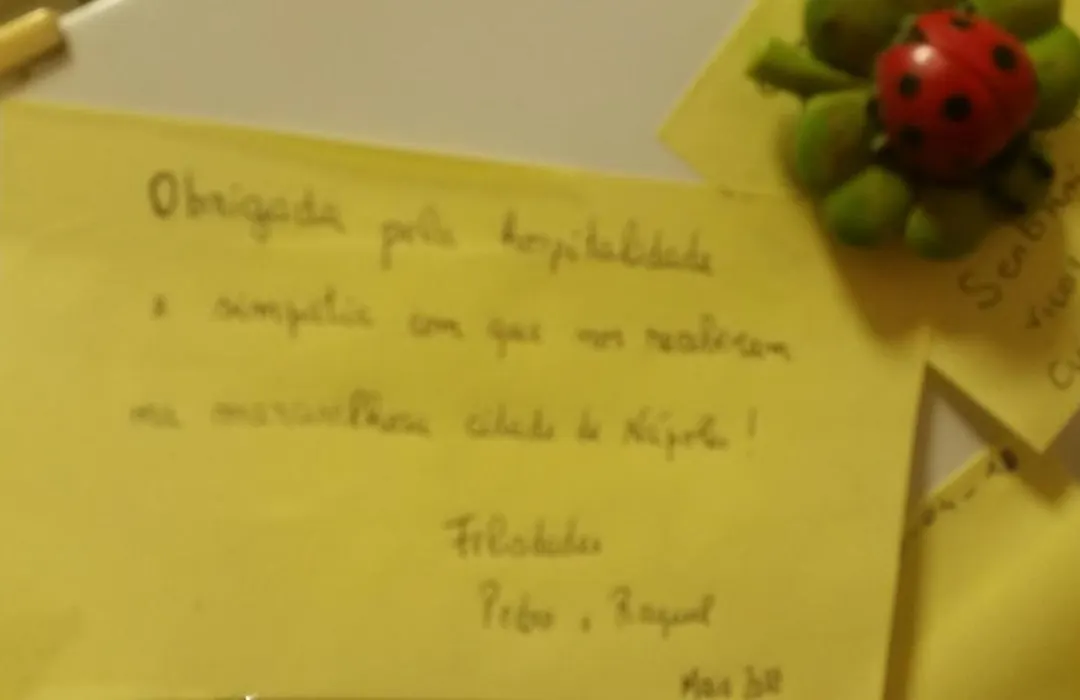 Obrigada pela hospitalidade
e simpatia com que nos receberam
na maravilhosa cidade de Nápoles!
Felicidades
Pedro e Raquel